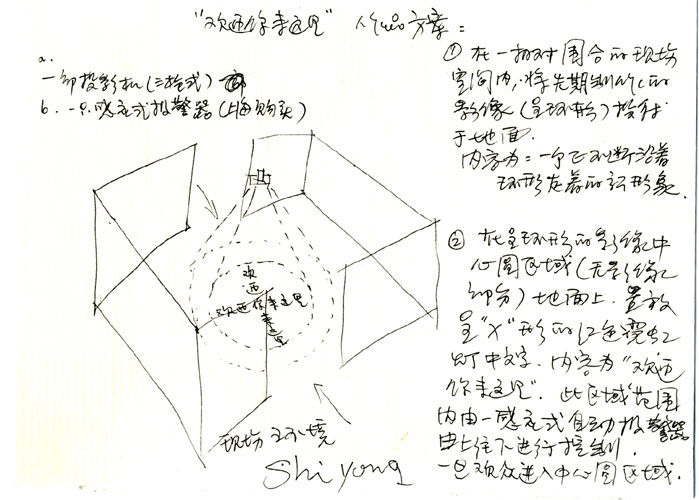 "欢迎你来这里" 作品方案:
a.
一部投影机(三枪式)
b. 一只感应式报警器(上海购买)
① 在一相对围合的现场
空间内,将先期制作的
影像(呈环形)投射
于地面.
内容为:一个正不断沿着
环形走着的 形象.
② 在呈环形的影像中
心圆区域(无影像
部分)地面上.置放
呈"X"形的红色霓虹
灯中文字.内容为"欢迎
你来这里".此区域范围
内由一感应式自动报警器
由上往下进行控制.
一旦观众进入中心圆区域.
欢
迎
欢迎你来这里
来
这
里
现场环境
Shi yong